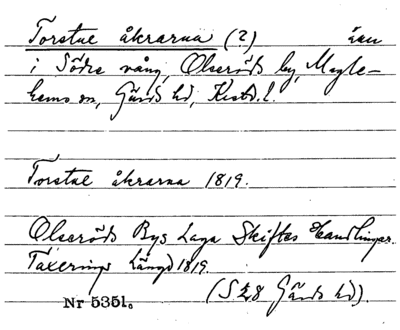 Torstue åkrarna (?) åker
i Södre vång, Olseröds by, Magle-
hems sn, Gärds hd, Krist. l.
Torstue åkrarna 1819.
Olseröds Bys Laga Skiftes Handlingar.
Taxerings Längd 1819.
Nr 5351. (S 28 Gärds hd).